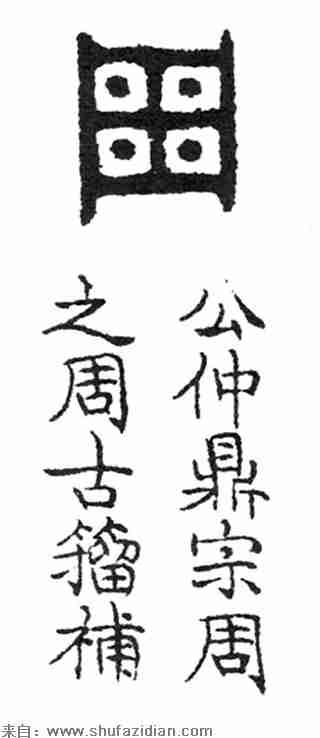 周
公仲鼎宗周
之周古籀補
来自：www.shufazidian.com